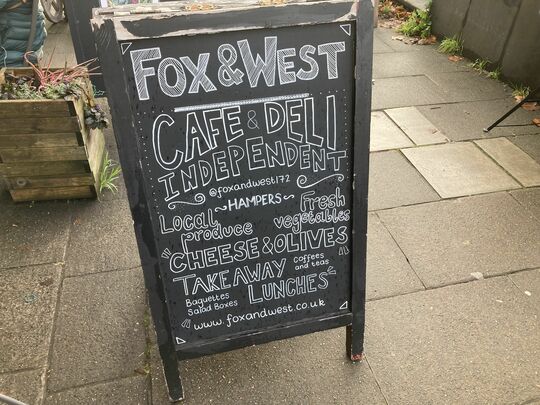 FOX & WEST
CAFE & DELI
INDEPENDENT
@foxandwest172
~HAMPERS~
Local Fresh
produce vegetables
"CHEESE & OLIVES"
TAKEAWAY Coffees and teas
Baguettes
Salad Boxes LUNCHES
"www.foxandwest.co.uk